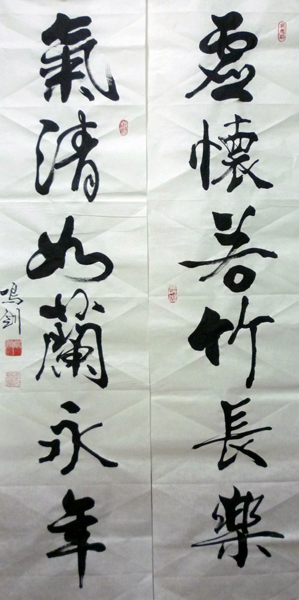 虛懷若竹長樂
氣清如蘭永年
鳴劍